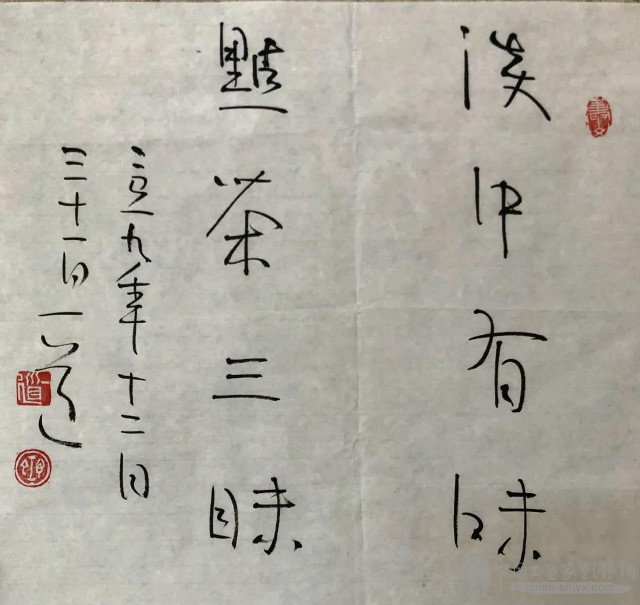 淡中有味
點茶三昧
二〇一九年十二月
三十一日一道
道